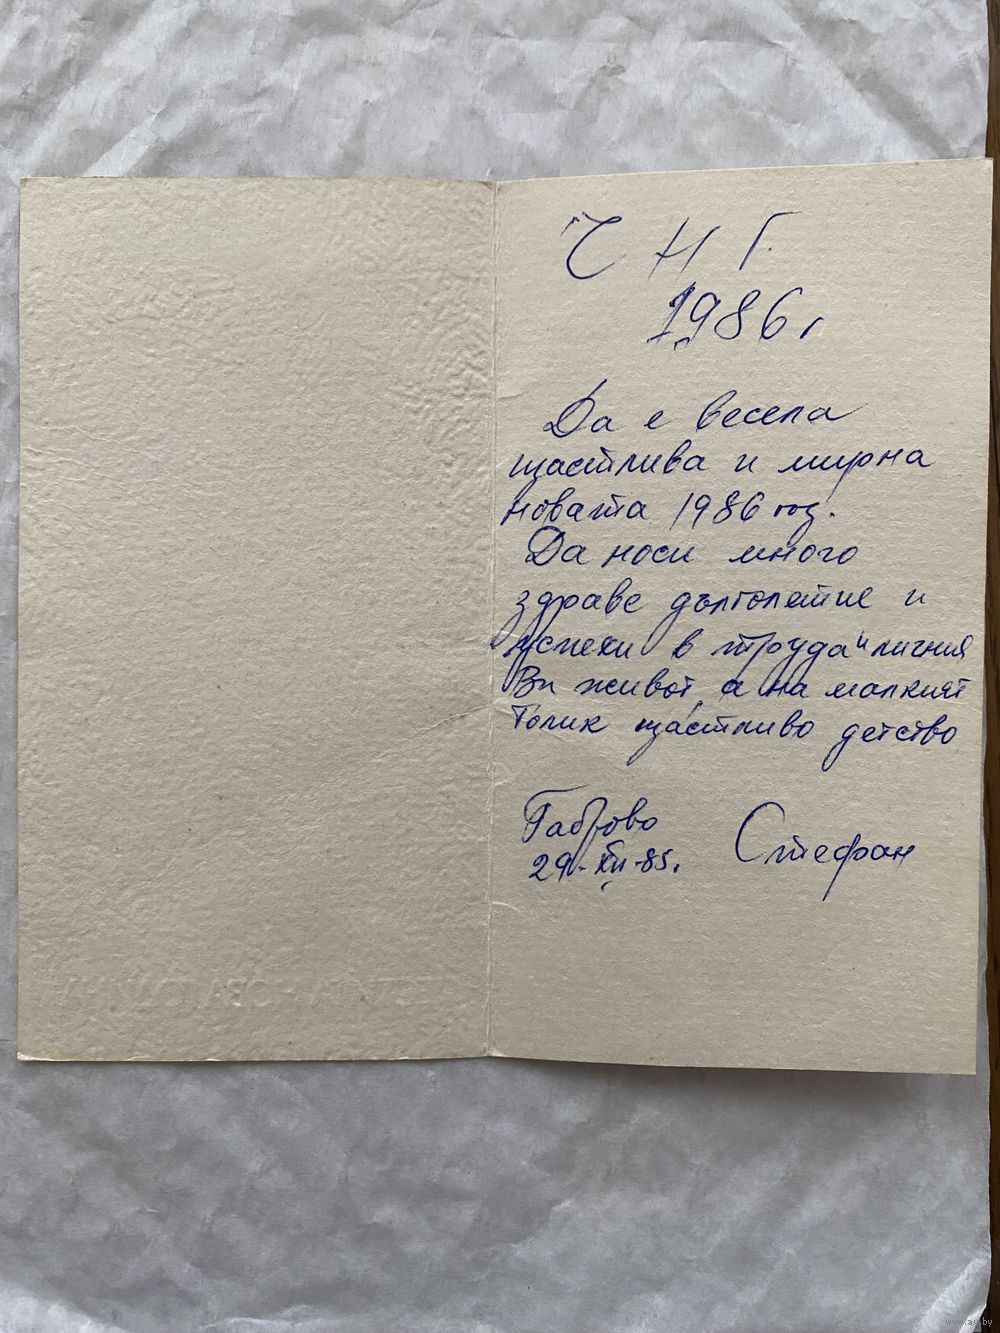 Ч Н Г
1986г
Да е весела
щастлива и мирна
новата 1986 год.
Да носи много
здраве дълголетие и
успехи в труда и личния
Ви живот, а на малкият
Толик щастливо детство
Габрово Стефан
29-XII-85г.
www.ay.by